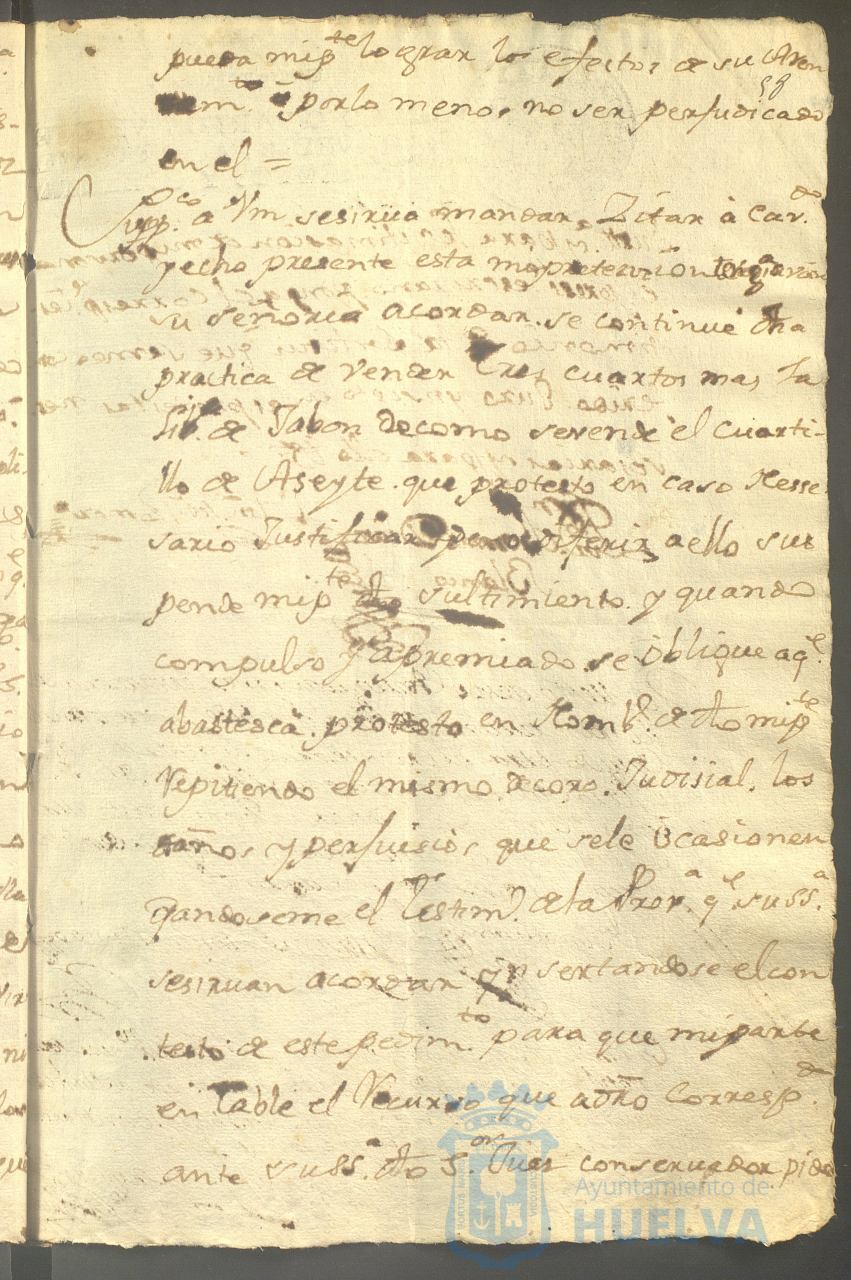 pueda mi p.te lograr los efectos de su Aren
59
dam.to ò por lo menos no ser perjudicado
en el =
Supp.co a Vm se sirua mandar Zitar à Cav.do
y echo presente esta mi pretencion
su señoria acordar se continue dha
practica de vender tres cuartos mas la
Lib.a de Jabon de como se vende el cuarti-
llo de Aseyte que protesto en caso Nesse
sario Justificar y de no diferir a ello sus
pende mi p.te dho y quando
compulso y apremiado se oblique a q.e
abastesca protesto en Nomb.e de dho mi p.te
Repitiendo el mismo decoro Judisial los
daños y perjuisios que se le ocasionen
dandoseme el Testim.o de la Prov.a q.e su ss.a
se siruan acordar Ynsertandose el con
testo de este pedim.to para que mi parte
en Table el Recurso que a dro corresp.de
ante su ss.a dho S.or Juez conseruador pido
Ayuntamiento de
HUELVA